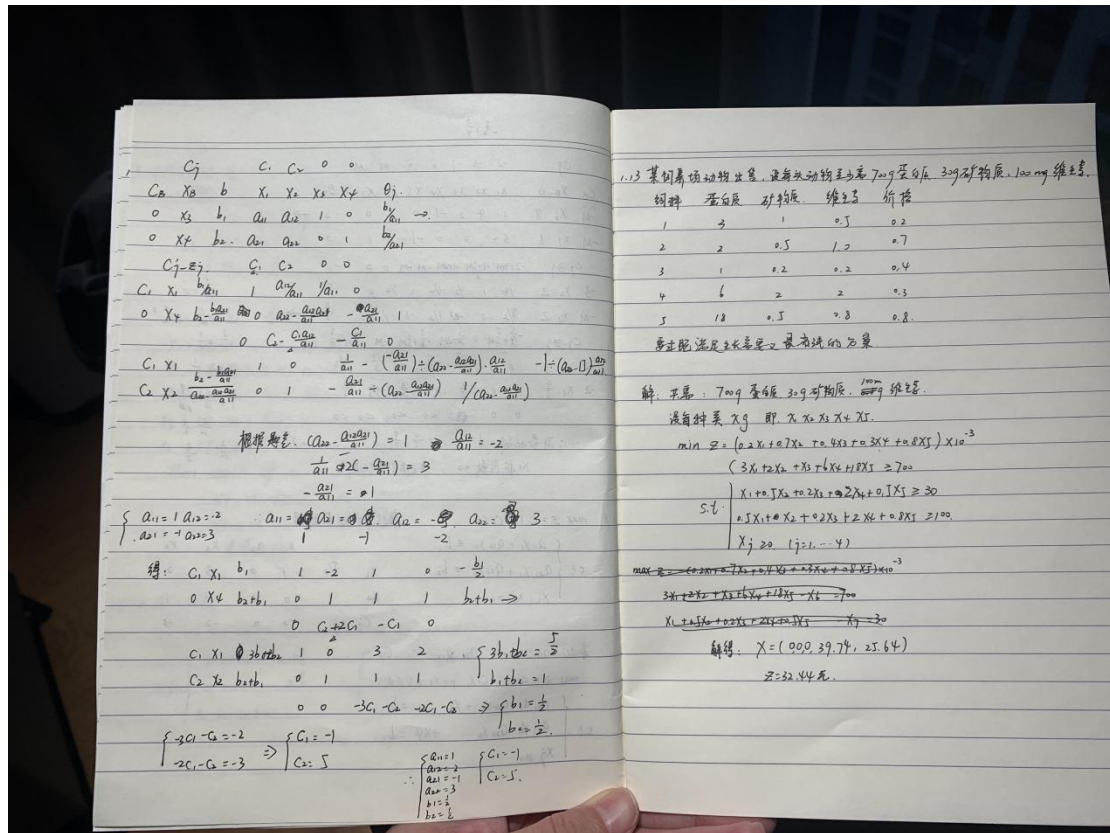 Cj C1 C2 0 0
CB XB b X1 X2 X3 X4 θj.
0 X3 b1 a11 a12 1 0 b1/a11 →
0 X4 b2. a21 a22 0 1 b2/a21
Cj-Zj. C1 C2 0 0
C1 X1 b1/a11 1 a12/a11 1/a11 0
0 X4 b2-b1a21/a11 0 a22-a12a21/a11 -a21/a11 1
0 C2-C1a12/a11 -C1/a11 0
C1 X1 1 0 1/a11 - (-a21/a11)÷(a22-a12a21/a11)·a12/a11
C2 X2 0 1 -a21/a11÷(a22-a12a21/a11) 1/(a22-a12a21/a11)
根据题意. (a22-a12a21/a11) = 1 a12/a11 = -2
-a21/a11 = 1
{ a11=1 a12=-2 a11= a21= a12= a22= 3
a21=-1 a22=3 1 -1 -2
得: C1 X1 b1 1 -2 1 0 -b1/2
0 X4 b2+b1 0 1 1 1 b2+b1 →
0 C2+2C1 -C1 0
C1 X1 3b1+2b2 1 0 3 2 { 3b1+2b2 = 5/2
C2 X2 b2+b1 0 1 1 1 b1+b2 =1
0 0 -3C1-C2 -2C1-C2 ⇒ { b1=1/2
b2=1/2.
{ -3C1-C2=-2 ⇒ { C1=-1
-2C1-C2=-3 C2=5
∴ { a11=1 { C1=-1
a12=-2 C2=5.
a21=-1
a22=3
b1=1/2
b2=1/2
1.13 某饲养场动物出售, 设每头动物至少需700g蛋白质 30g矿物质. 100mg维生素.
饲料 蛋白质 矿物质. 维生素 价格
1 3 1 0.5 0.2
2 2 0.5 1.0 0.7
3 1 0.2 0.2 0.4
4 6 2 2 0.3
5 18 0.5 0.8 0.8.
解. 共需: 700g 蛋白质 30g矿物质. 100m g 维生素
设每种类 xg 即. X1 X2 X3 X4 X5.
min Z = (0.2X1+0.7X2+0.4X3+0.3X4+0.8X5)×10⁻³
{ 3X1+2X2+X3+6X4+18X5 ≥ 700
X1+0.5X2+0.2X3+2X4+0.5X5 ≥ 30
s.t.
0.5X1+X2+0.2X3+2X4+0.8X5 ≥100.
Xj ≥0 (j=1.…4)
max Z = -(0.2X1+0.7X2+0.4X3+0.3X4+0.8X5)×10⁻³
3X1+2X2+X3+6X4+18X5-X6 =700
X1+0.5X2+0.2X3+2X4+0.5X5 -X7=30
解得: X=(0,0,0, 39.74, 25.64)
Z=32.44元.